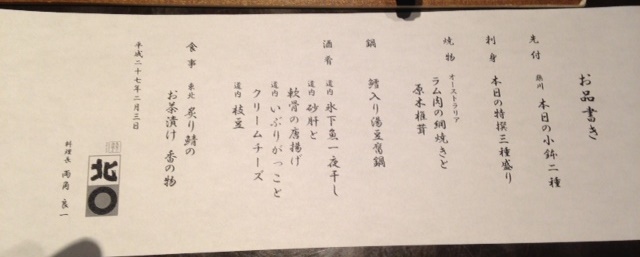 お品書き
先付 旭川 本日の小鉢二種
刺身 本日の特撰三種盛り
焼物 オーストラリア ラム肉の網焼きと
原木椎茸
鍋 鱈入り湯豆腐鍋
酒肴 道内 氷下魚一夜干し
道内 砂肝と
軟骨の唐揚げ
道内 いぶりがっこと
クリームチーズ
道内 枝豆
食事 東北 炙り鯖の
お茶漬け 香の物
平成二十七年二月三日
北〇
料理長 両角 良一